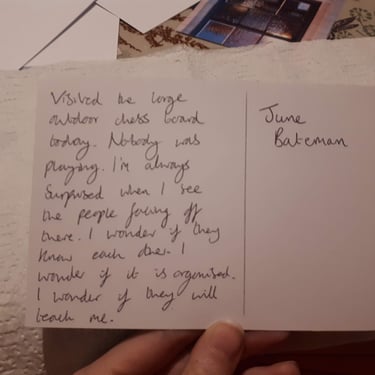 Visited the large
outdoor chess board
today. Nobody was
playing. I'm always
surprised when I see
the people facing off
there. I wonder if they
know each other. I
wonder if it is organised.
I wonder if they will
teach me.
June
Bateman